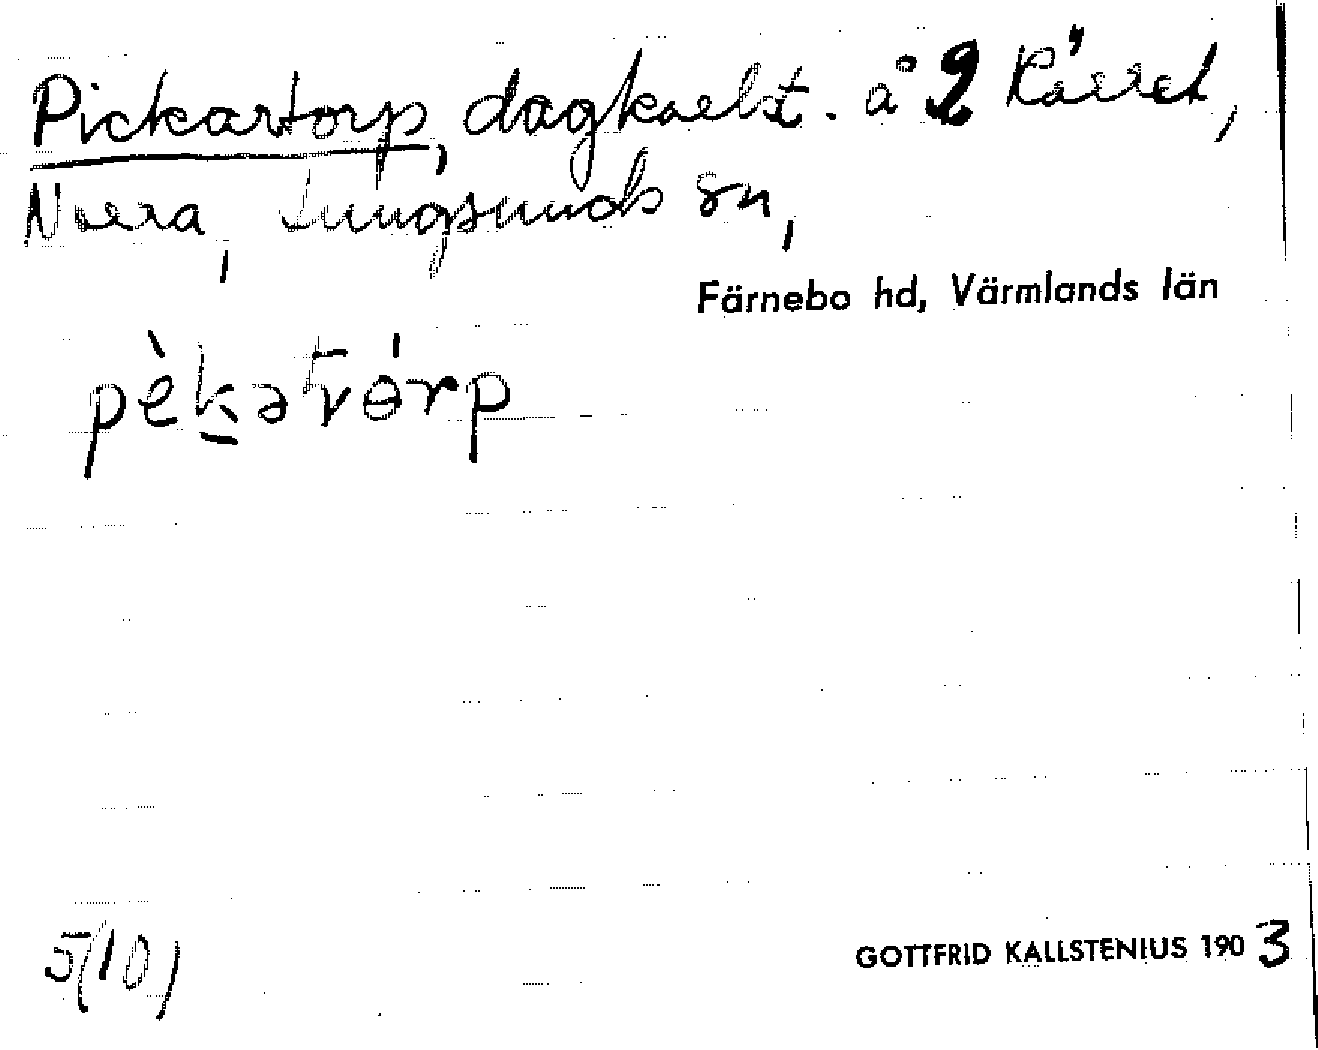 Pickartorp, dagkarlst. å 2 Kärret,
Norra, Lungsunds sn,
Färnebo hd, Värmlands län
pèkatvórp
5(10)
GOTTFRID KALLSTENIUS 1903